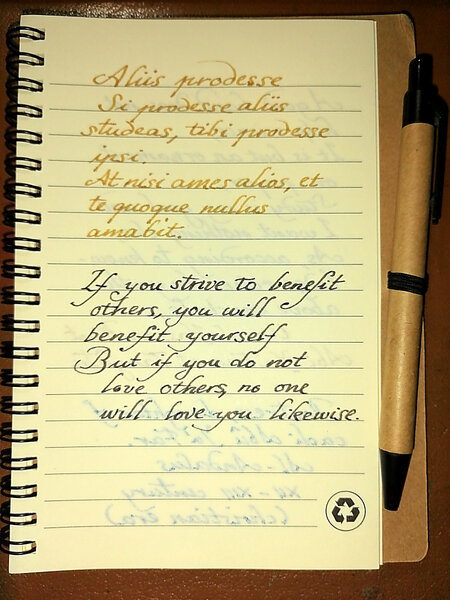 Aliis prodesse
Si prodesse aliis
studeas, tibi prodesse
ipsi.
At nisi ames alios, et
te quoque nullus
amabit.
If you strive to benefit
others, you will
benefit yourself
But if you do not
love others, no one
will love you likewise.